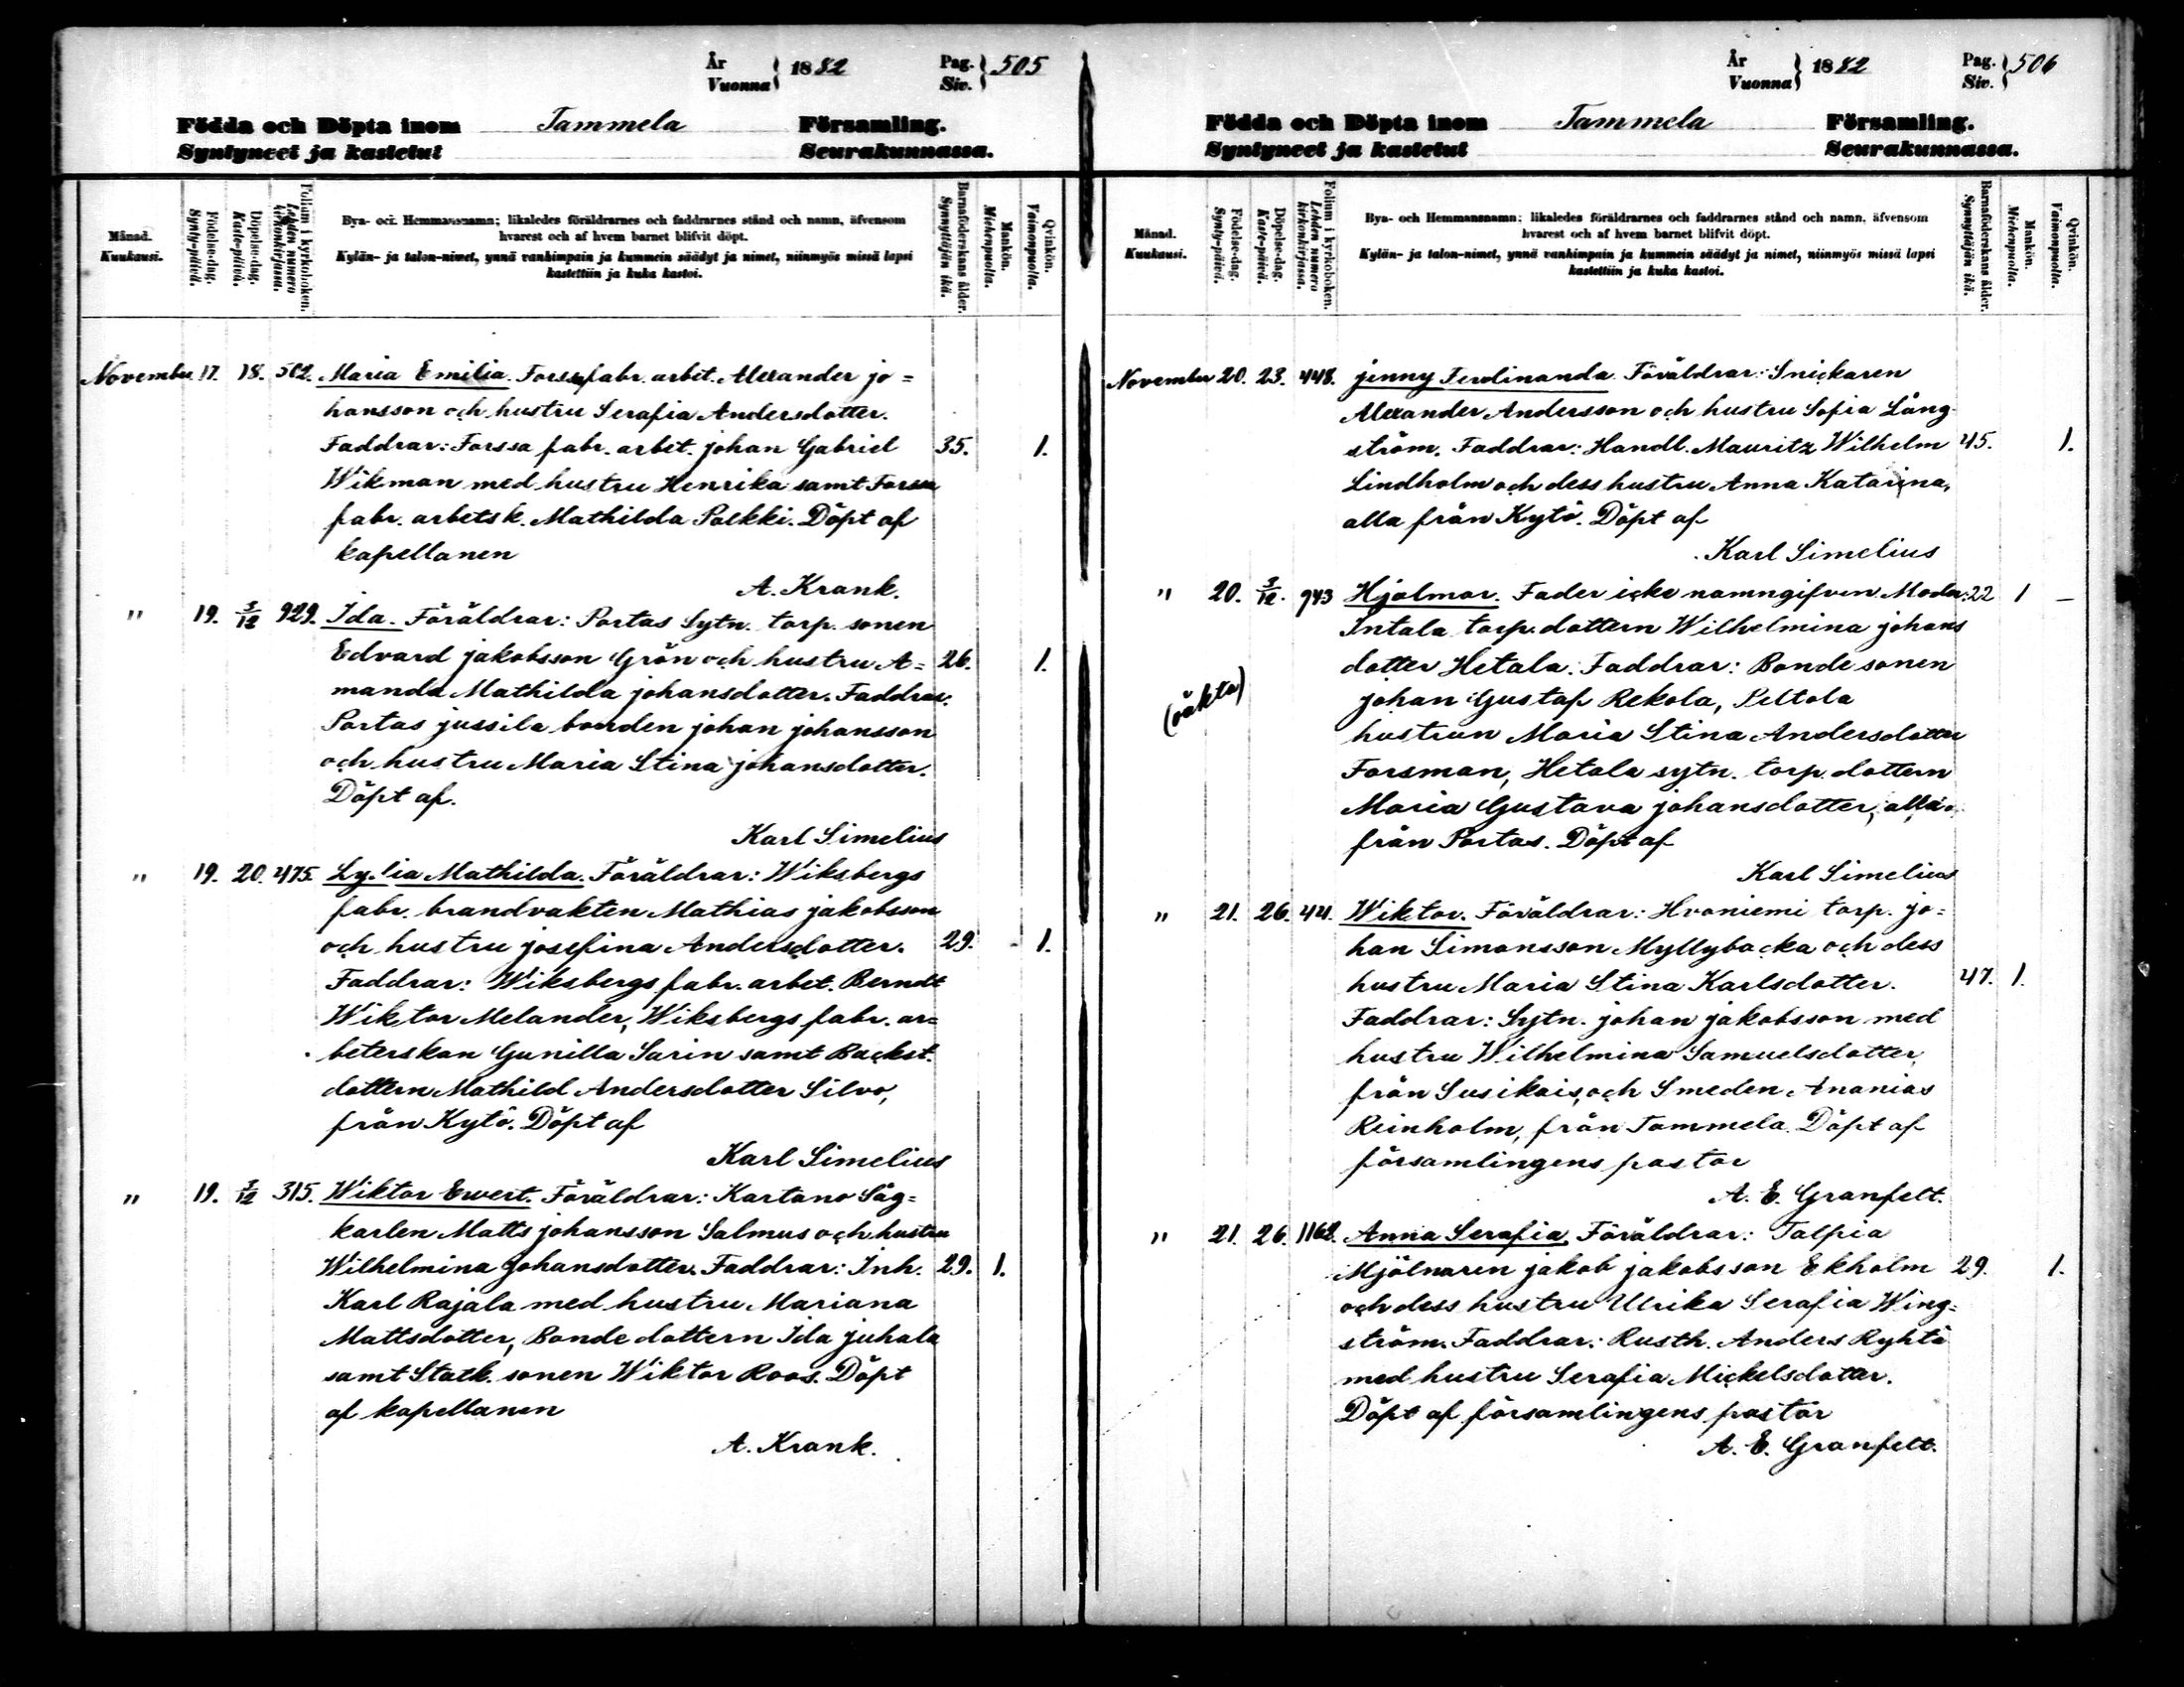 År
Vuonna } 1882 Pag.
Siv. } 505
Födda och Döpta inom Tammela Församling.
Syntyneet ja kastetut Seurakunnassa.
Månad.
Kuukausi.
Födelse-dag.
Synty-päivä.
Döpelse-dag.
Kaste-päivä.
Folium i kyrkoboken.
Lehden numero
kirkonkirjassa.
Bya- och Hemmansnamn; likaledes föräldrarnes och faddrarnes stånd och namn, äfvensom
hvarest och af hvem barnet blifvit döpt.
Kylän- ja talon-nimet, ynnä vanhimpain ja kummein säädyt ja nimet, niinmyös missä lapsi
kastettiin ja kuka kastoi.
Barnaföderskans ålder.
Synnyttäjän ikä.
Mankön.
Miehenpuolta.
Qvinkön.
Vaimonpuolta.
November 17. 18. 502. Maria Emilia. Forssa fabr. arbet. Alexander jo=
hansson och hustru Serafia Andersdotter.
Faddrar: Forssa fabr. arbet. johan Gabriel 35. 1.
Wikman med hustru Henrika samt Forssa
fabr. arbetsk. Mathilda Palkki. Döpt af
kapellanen
A. Krank.
" 19. 3/12 929. Ida. Föräldrar: Portas Sytn. torp. sonen
Edvard jakobsson Grön och hustru A= 26. 1.
manda Mathilda johansdotter. Faddrar.
Portas jussila bonden johan johansson
och hustru Maria Stina johansdotter.
Döpt af.
Karl Simelius
" 19. 20. 475. Lydia Mathilda. Föräldrar: Wiksbergs
fabr. brandvakten Mathias jakobsson
och hustru josefina Andersdotter. 29. 1.
Faddrar: Wiksbergs fabr. arbet. Berndt
Wiktor Melander, Wiksbergs fabr. ar=
beterskan Gunilla Sarin samt Backst.
dottern Mathild Andersdotter Silvo,
från Kytö. Döpt af
Karl Simelius
" 19. 3/12 315. Wiktor Ewert. Föräldrar: Kartano Såg=
karlen Matts johansson Salmus och hustru
Wilhelmina Johansdotter. Faddrar: Inh. 29. 1.
Karl Rajala med hustru Mariana
Mattsdotter, Bonde dottern Ida juhala
samt Statk. sonen Wiktor Roos. Döpt
af kapellanen
A. Krank.
År
Vuonna } 1882 Pag.
Siv. } 506
Födda och Döpta inom Tammela Församling.
Syntyneet ja kastetut Seurakunnassa.
Månad.
Kuukausi.
Födelse-dag.
Synty-päivä.
Döpelse-dag.
Kaste-päivä.
Folium i kyrkoboken.
Lehden numero
kirkonkirjassa.
Bya- och Hemmansnamn; likaledes föräldrarnes och faddrarnes stånd och namn, äfvensom
hvarest och af hvem barnet blifvit döpt.
Kylän- ja talon-nimet, ynnä vanhimpain ja kummein säädyt ja nimet, niinmyös missä lapsi
kastettiin ja kuka kastoi.
Barnaföderskans ålder.
Synnyttäjän ikä.
Mankön.
Miehenpuolta.
Qvinkön.
Vaimonpuolta.
November 20. 23. 448. jenny Ferdinanda. Föräldrar: Snickaren
Alexander Andersson och hustru Sofia Lång-
ström. Faddrar: Handl. Mauritz Wilhelm 45. 1.
Lindholm och dess hustru Anna Katarina,
alla från Kytö. Döpt af
Karl Simelius
" 20. 3/12. 943 Hjalmar. Fader icke namngifven Moder: 22 1 —
Intala torp. dottern Wilhelmina johans
dotter Hetala. Faddrar: Bonde sonen
(oäkta) johan Gustaf Rekola, Peltola
hustrun Maria Stina Andersdotter
Forsman, Hetala sytn. torp. dottern
Maria Gustava johansdotter, alla
från Portas. Döpt af
Karl Simelius
" 21. 26. 44. Wiktor. Föräldrar: Hvoniemi torp. jo=
han Simonsson Myllybacka och dess
hustru Maria Stina Karlsdotter. 47. 1.
Faddrar: Sytn. johan jakobsson med
hustru Wilhelmina Samuelsdotter
från Susikais, och Smeden Ananias
Reinholm, från Tammela. Döpt af
församlingens pastor
A. E. Granfelt.
" 21. 26. 1168. Anna Serafia. Föräldrar: Talpia
Mjölnaren jakob jakobsson Ekholm 29. 1.
och dess hustru Ulrika Serafia Wing=
ström. Faddrar: Rusth. Anders Ryhtä
med hustru Serafia Mickelsdotter.
Döpt af församlingens pastor
A. E. Granfelt.